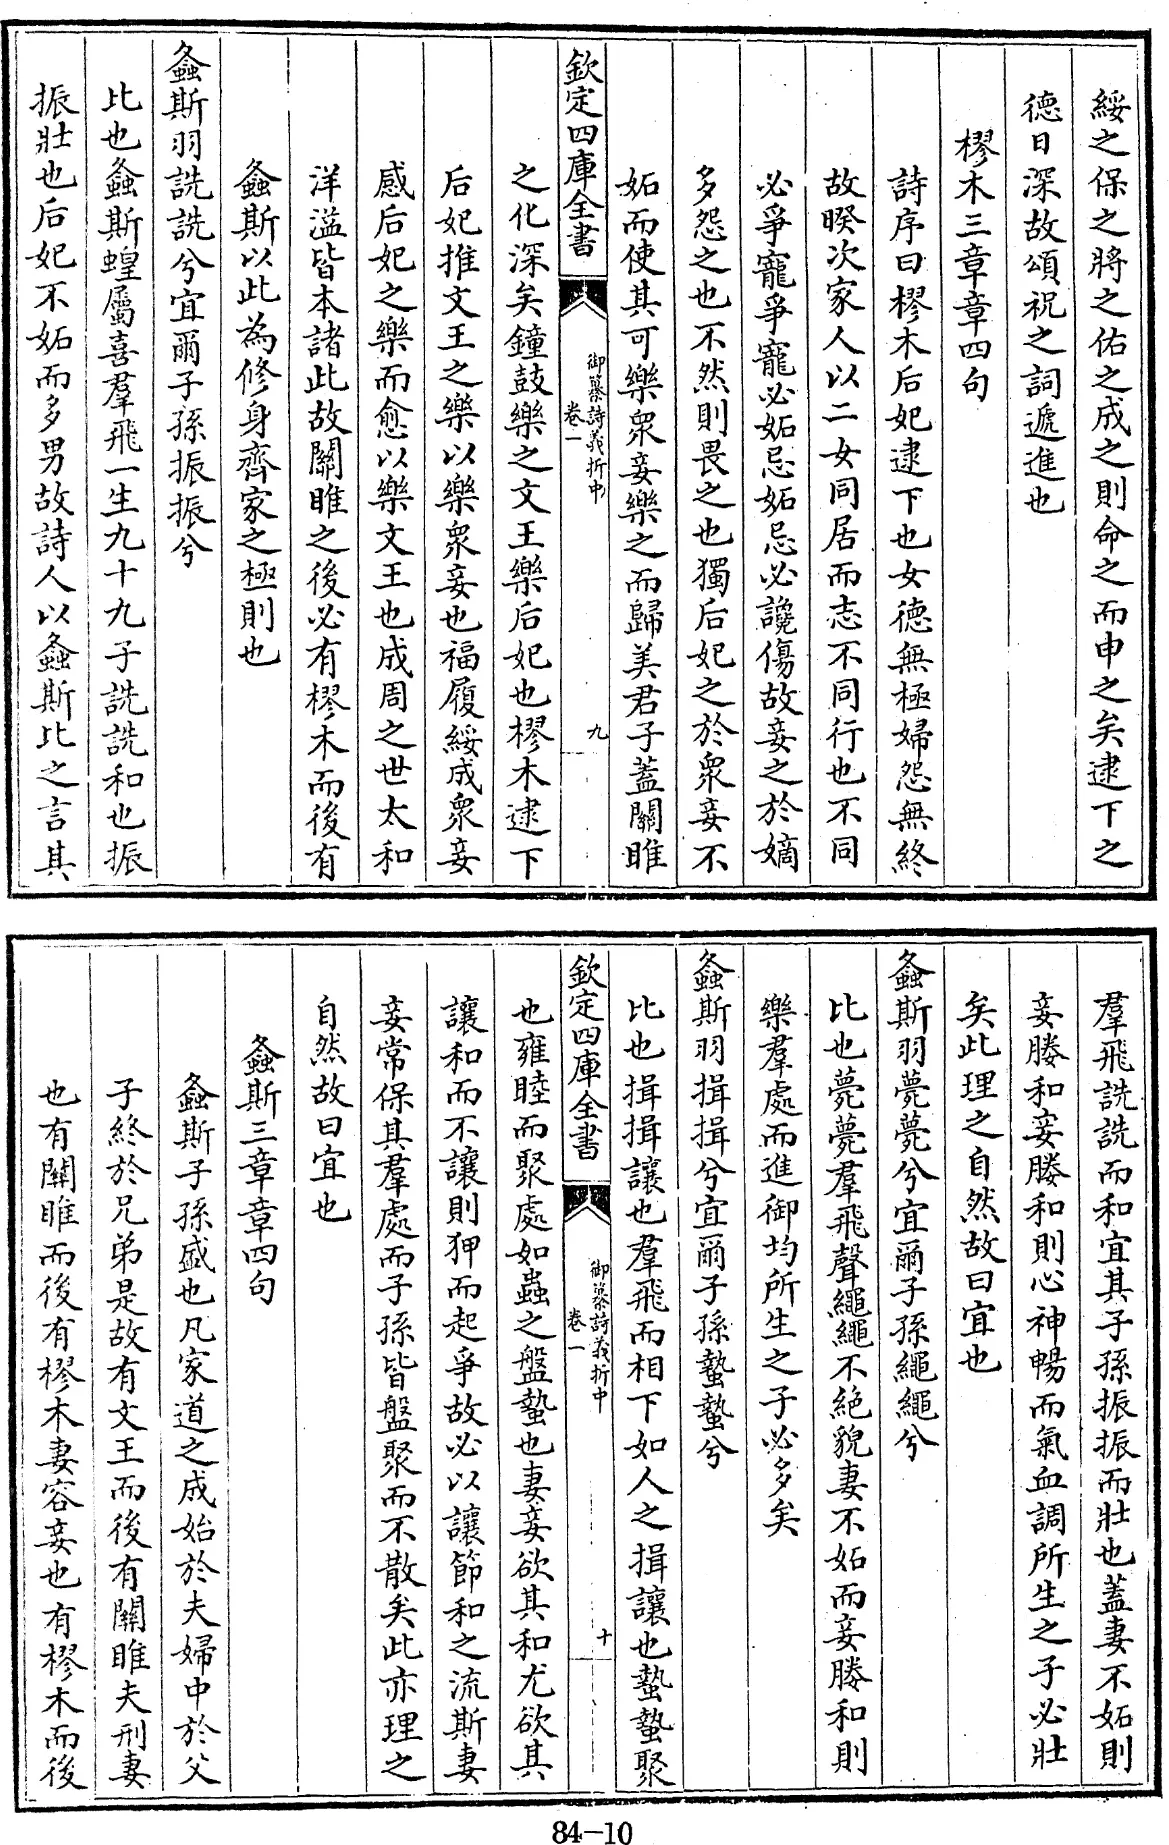 綏之保之將之佑之成之則命之而申之矣逮下之
德日深故頌祝之詞遞進也
樛木三章章四句
詩序曰樛木后妃逮下也女德無極婦怨無終
故睽次家人以二女同居而志不同行也不同
必爭寵爭寵必妬忌妬忌必讒傷故妾之於嫡
多怨之也不然則畏之也獨后妃之於衆妾不
妬而使其可樂衆妾樂之而歸美君子蓋關雎
欽定四庫全書
御纂詩義折中
卷一
九
之化深矣鐘鼓樂之文王樂后妃也樛木逮下
后妃推文王之樂以樂衆妾也福履綏成衆妾
感后妃之樂而愈以樂文王也成周之世太和
洋溢皆本諸此故關雎之後必有樛木而後有
螽斯以此為修身齊家之極則也
螽斯羽詵詵兮宜爾子孫振振兮
比也螽斯蝗屬喜羣飛一生九十九子詵詵和也振
振壯也后妃不妬而多男故詩人以螽斯比之言其
羣飛詵詵而和宜其子孫振振而壯也蓋妻不妬則
妾媵和妾媵和則心神暢而氣血調所生之子必壯
矣此理之自然故曰宜也
螽斯羽薨薨兮宜爾子孫繩繩兮
比也薨薨羣飛聲繩繩不絶貌妻不妬而妾媵和則
樂羣處而進御均所生之子必多矣
螽斯羽揖揖兮宜爾子孫蟄蟄兮
比也揖揖讓也羣飛而相下如人之揖讓也蟄蟄聚
欽定四庫全書
御纂詩義折中
卷一
十
也雍睦而聚處如蟲之盤蟄也妻妾欲其和尤欲其
讓和而不讓則狎而起爭故必以讓節和之流斯妻
妾常保其羣處而子孫皆盤聚而不散矣此亦理之
自然故曰宜也
螽斯三章章四句
螽斯子孫盛也凡家道之成始於夫婦中於父
子終於兄弟是故有文王而後有關雎夫刑妻
也有關雎而後有樛木妻容妾也有樛木而後
84-10